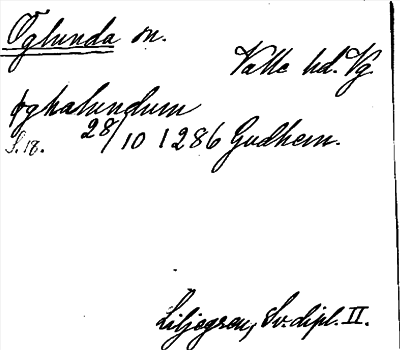 Öglunda sn.
Valle hd. Vg.
øghalundum
S. 18. 28/10 1286 Gudhem.
Liljegren, Sv. dipl. II.